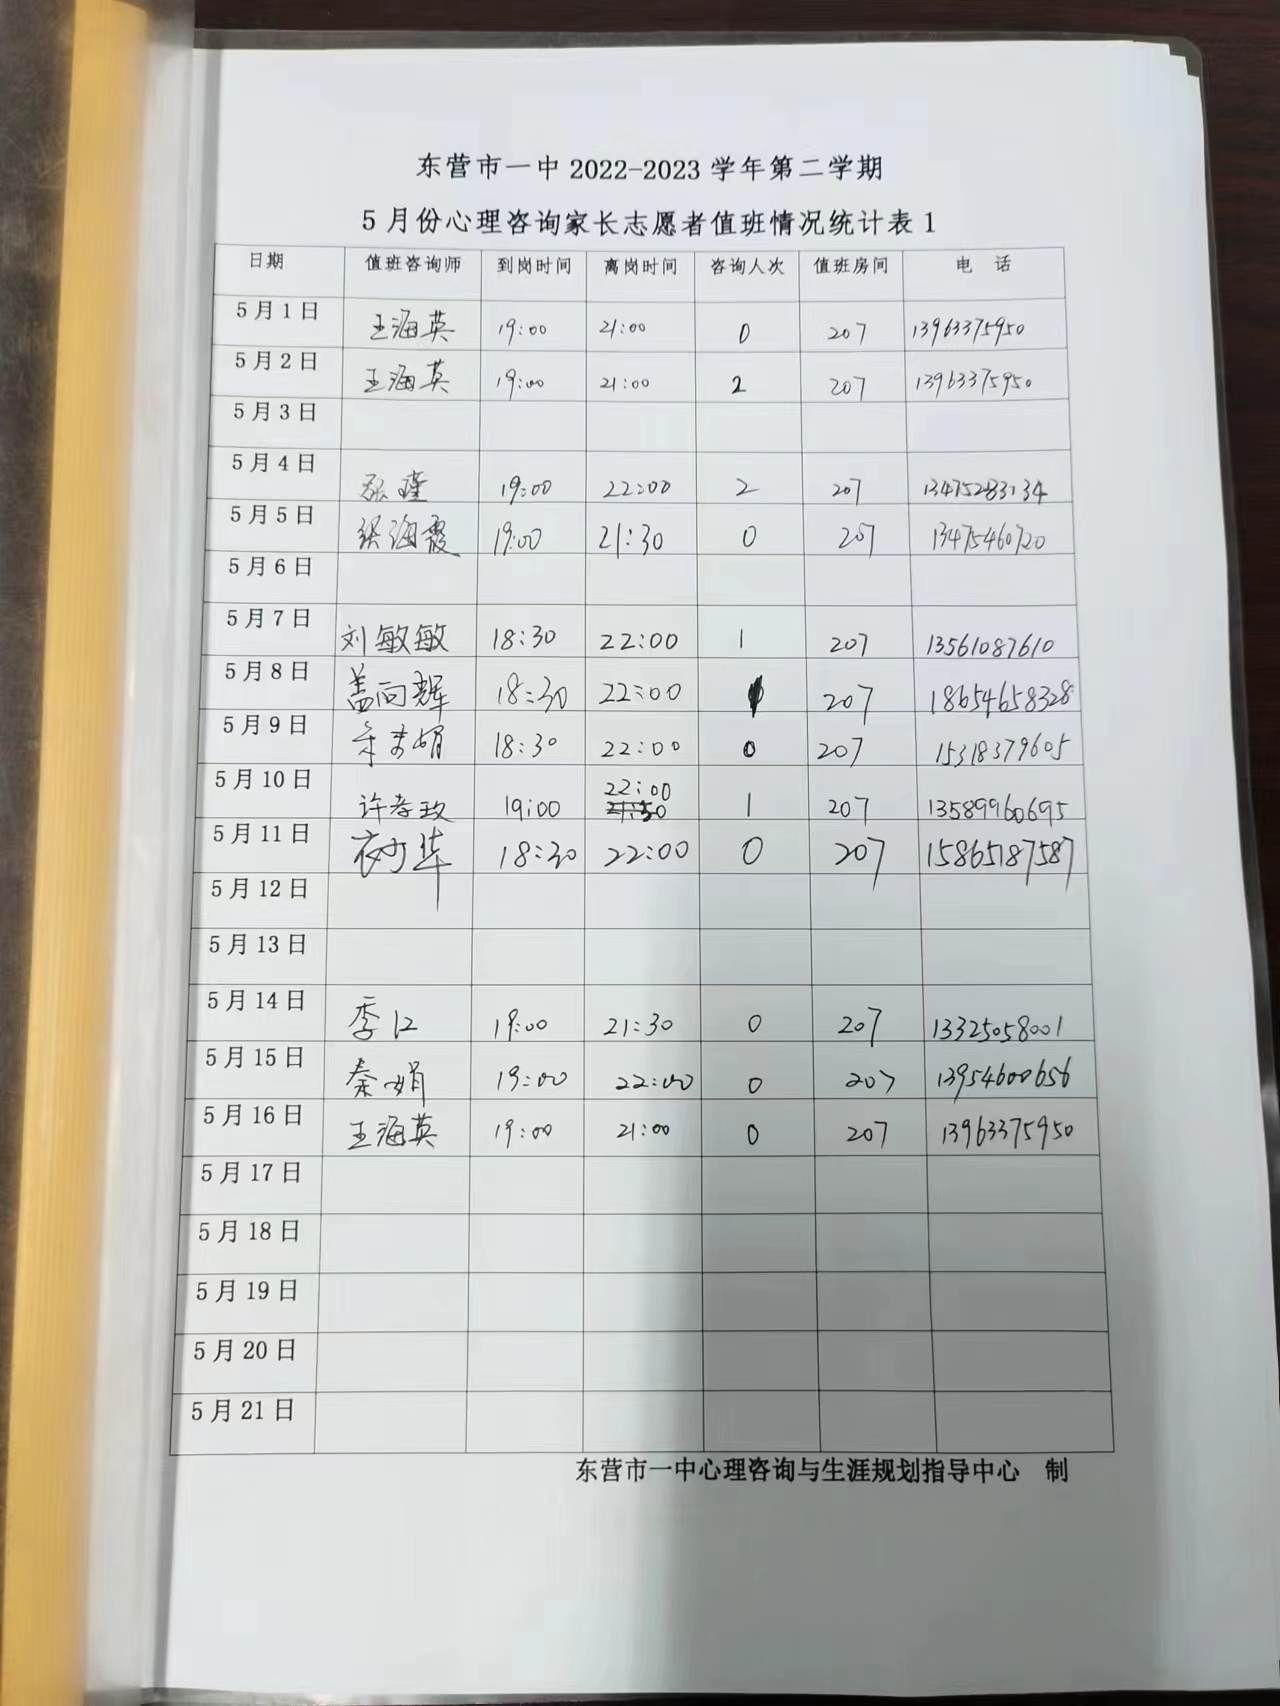 东营市一中 2022-2023 学年第二学期
5 月份心理咨询家长志愿者值班情况统计表 1
日期 值班咨询师 到岗时间 离岗时间 咨询人次 值班房间 电 话
5 月 1 日 王海英 19:00 21:00 0 207 13963375950
5 月 2 日 王海英 19:00 21:00 2 207 13963375950
5 月 3 日
5 月 4 日 张瑾 19:00 22:00 2 207 13475283134
5 月 5 日 张海霞 19:00 21:30 0 207 13475460720
5 月 6 日
5 月 7 日 刘敏敏 18:30 22:00 1 207 13561087610
5 月 8 日 盖向辉 18:30 22:00 207 18654658328
5 月 9 日 18:30 22:00 0 207 15318379605
5 月 10 日 许孝玫 19:00 22:00 1 207 13589960695
5 月 11 日 18:30 22:00 0 207 15865187587
5 月 12 日
5 月 13 日
5 月 14 日 季江 19:00 21:30 0 207 13325058001
5 月 15 日 秦娟 19:00 22:00 0 207 13954600656
5 月 16 日 王海英 19:00 21:00 0 207 13963375950
5 月 17 日
5 月 18 日
5 月 19 日
5 月 20 日
5 月 21 日
东营市一中心理咨询与生涯规划指导中心 制